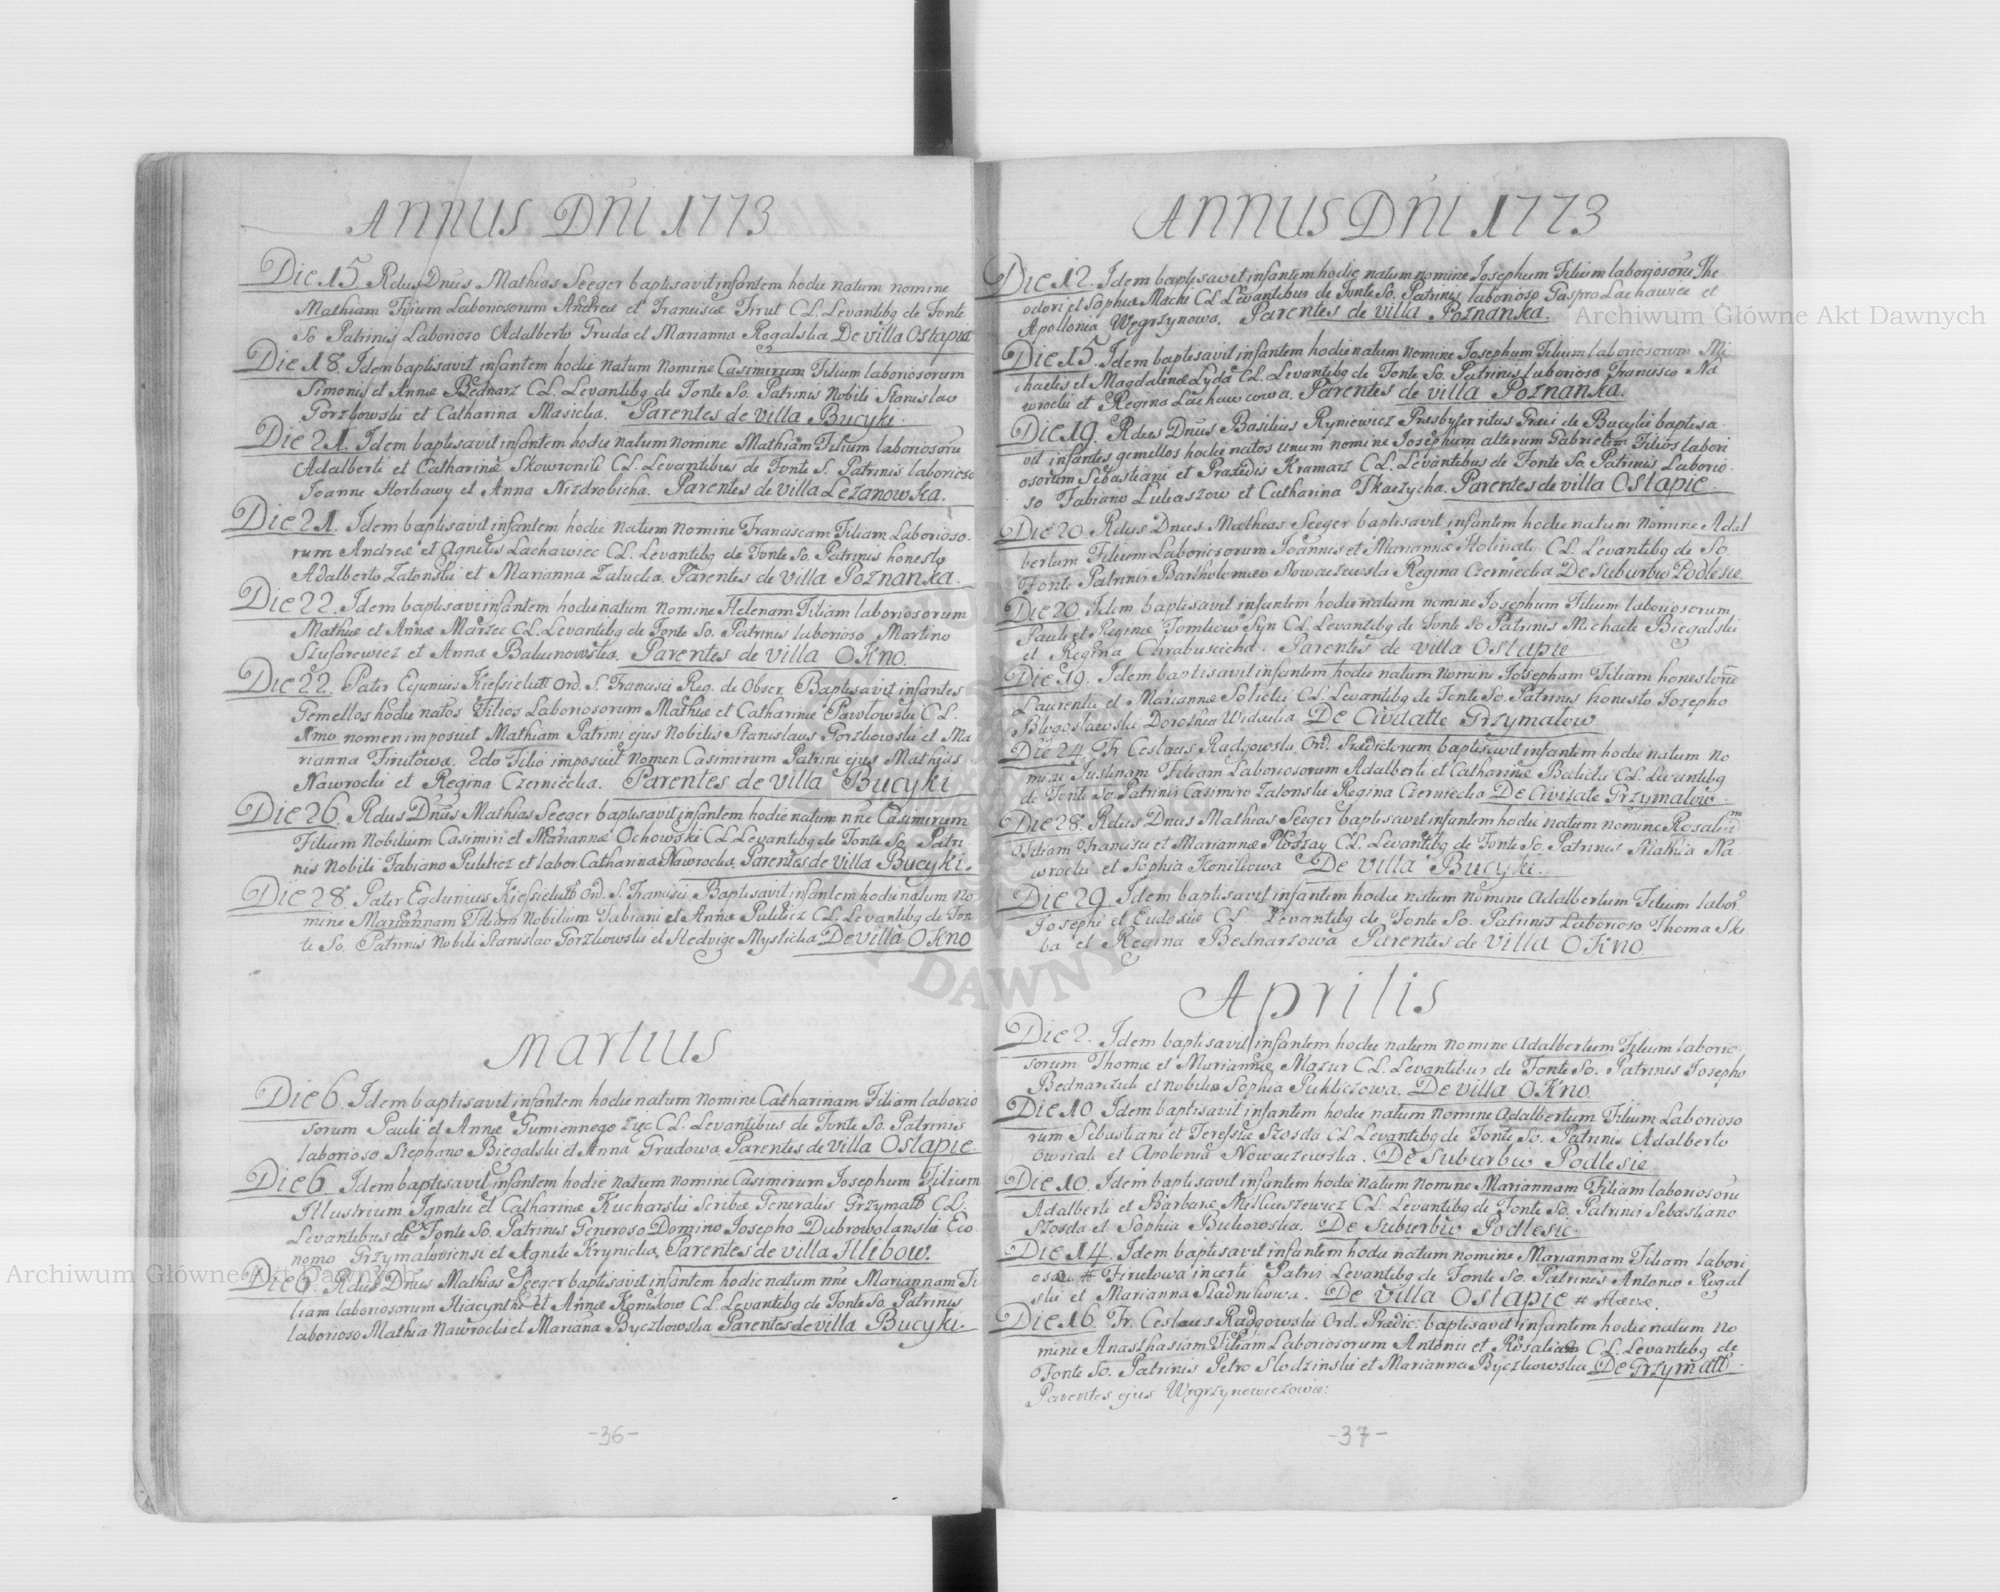 ANNUS DNI 1773
Die 15. Rdus Dnus Mathias Seeger baptisavit infantem hodie natum nomine
Mathiam Filium Laboriosorum Andreæ et Franciscæ Firut CL. Levantibq de Fonte
So Patrinis Laborioso Adalberto Gruda et Marianna Rogalska De villa Ostapie
Die 18. Idem baptisavit infantem hodie natum nomine Casimirum Filium laboriosorum
Simonis et Annæ Bednarz CL. Levantibq de Fonte So. Patrinis Nobili Stanislao
Gorzkowski et Catharina Masicka. Parentes de villa Bucyki.
Die 21. Idem baptisavit infantem hodie natum nomine Mathiam Filium laboriosorū
Adalberti et Catharinæ Skowronik CL. Levantibus de Fonte S. Patrinis laborioso
Joanne Horkawy et Anna Nizdrobicha. Parentes de villa Lezanowka.
Die 21. Idem baptisavit infantem hodie natum nomine Franciscam Filiam Laborioso-
rum Andreæ et Agnetis Lachawiec CL. Levantibq de Fonte So. Patrinis honesto
Adalberto Zatonski et Marianna Zalucka. Parentes de villa Poznanka.
Die 22. Idem baptisavi infantem hodie natum nomine Helenam Filiam laboriosorum
Mathiæ et Annæ Marzec CL. Levantibq de Fonte So. Patrinis laborioso Martino
Szufarewicz et Anna Balunowska. Parentes de villa OKno.
Die 22. Pater Ord. S. Francisci Reg. de Obser. Baptisavit infantes
Gemellos hodie natos Filios Laboriosorum Mathiæ et Catharinæ Pawlowski CL.
1mo nomen imposuit Mathiam Patrini ejus Nobilis Stanislaus Gorzkowski et Ma
rianna Firutowa. 2do Filio imposuit nomen Casimirum Patrini ejus Mathias
Nawrocki et Regina Czerniecka. Parentes de villa Bucyki
Die 26. Rdus Dnus Mathias Seeger baptisavit infantem hodie natum nñe Casimirum
Filium Nobilium Casimiri et Mariannæ Ochowski CL Levantibq de Fonte So. Patri-
nis Nobili Fabiano Pulikcz et labor Catharina Nawrocka, Parentes de villa Bucyki.
Die 28. Pater Ord. S. Francisci Baptisavit infantem hodie natum no
mine Mariannam Filiam Nobilium Fabiani et Annæ Pulikcz CL. Levantibq de Fon-
te So. Patrinis Nobile Stanislao Gorzkowski et Hedvige Myslicka De villa OKno
Martius
Die 6. Idem baptisavit infantem hodie natum nomine Catharinam Filiam laborio
sorum Pauli et Annæ Gumiennego zięc CL. Levantibus de Fonte So. Patrinis
laborioso Stephano Biegalski et Anna Grudowa Parentes de villa Ostapie.
Die 6. Idem baptisavit infantem hodie natum nomine Casimirum Josephum Filium
Illustrium Ignatii et Catharinæ Kucharski Scribæ Generalis Grzymał CL.
Levantibus de Fonte So. Patrinis Generoso Domino Josepho Dubrowolanski Eco
nomo Grzymaloviensi et Agnete Krynicka, Parentes de villa Hlibow.
Die 6. Rdus Dnus Mathias Seeger baptisavit infantem hodie natum nñe Mariannam Fi
liam laboriosorum Hiacynthi et Annæ Konikow CL. Levantibq de Fonte So. Patrinis
laborioso Mathia Nawrocki et Mariana Byczkowska Parentes de villa Bucyki.
-36-
ANNUS DNI 1773
Die 12. Idem baptisavit infantem hodie natum nomine Josephum Filium laboriosorū The
odori et Sophiæ Machi CL Levantibus de Fonte So. Patrinis laborioso Gaspro Lachawiec et
Apollonia Węgrzynowa. Parentes de villa Poznanka.
Die 15. Idem baptisavit infantem hodie natum nomine Josephum Filium laboriosorum Mi
chaelis et Magdalenæ Lyda CL. Levantibq de Fonte So. Patrinis laborioso Francisco Na
wrocki et Regina Lachawcowa. Parentes de villa Poznanka.
Die 19. Rdus Dnus Basilius Ryniewicz Presbyter ritus Græci de Bucyki baptisa-
vit infantes gemellos hodie natos unum nomine Josephum alterum Gabrielem Filios labori
osorum Sebastiani et Praxedis Kramarz CL. Levantibus de Fonte So. Patrinis Laborio-
so Fabiano Lukaszow et Catharina Tkaczycha. Parentes de villa Ostapie.
Die 20. Rdus Dnus Mathias Seeger baptisavit infantem hodie natum nomine Adal
bertum Filium Laboriosorum Joannis et Mariannæ CL. Levantibq de So.
Fonte Patrinis Bartholomæo Nowaczewski Regina Czerniecka De suburbio Podlesie.
Die 20. Idem baptisavit infantem hodie natum nomine Josephum Filium laboriosorum
Pauli et Reginæ Tomkow Syn CL Levantibq de Fonte So Patrinis Michaele Biegalski
et Regina Chrabuscicha. Parentes de villa Ostapie
Die 19. Idem baptisavit infantem hodie natum nomine Josepham Filiam honestorū
Laurentii et Mariannæ Solicki CL Levantibq de Fonte So. Patrinis honesto Josepho
Blogoslawski Dorothea Widacka De Civitate Grzymalow.
Die 24. Fr. Ceslaus Radgowski Ord. Prædictorum baptisavit infantem hodie natum no
mine Justinam Filiam Laboriosorum Adalberti et Catharinæ Balicki CL. Levantibq
de Fonte So. Patrinis Casimiro Zatonski Regina Czerniecka De Civitate Grzymalow.
Die 28. Rdus Dnus Mathias Seeger baptisavit infantem hodie natum nomine Rosaliam
Filiam Francisci et Mariannæ Ploszay CL. Levantibq de Fonte So. Patrinis Mathia Na-
wrocki et Sophia Konikowa De villa Bucyki.
Die 29. Idem baptisavit infantem hodie natum nomine Adalbertum Filium labor
Josephi et Eudoxiæ CL. Levantibq de Fonte So. Patrinis Laborioso Thoma Ski
ba et Regina Bednarzowa Parentes de villa OKno.
Aprilis
Die 2. Idem baptisavit infantem hodie natum nomine Adalbertum Filium laborio
sorum Thomæ et Mariannæ Mazur CL. Levantibus de Fonte So. Patrinis Josepho
Bednarczuk et nobilis Sophia Pukliczowa. De villa OKno.
Die 10. Idem baptisavit infantem hodie natum nomine Adalbertum Filium Laborioso
rum Sebastiani et Teressiæ Szosda CL Levantibq de Fonte So. Patrinis Adalberto
Owsiak et Apolonia Nowaczewska. De Suburbio Podlesie
Die 10. Idem baptisavit infantem hodie natum nomine Mariannam Filiam laboriosorū
Adalberti et Barbaræ Mielcuszewicz CL. Levantibq de Fonte So. Patrinis Sebastiano
Szosda et Sophia Bukowska. De Suburbio Podlesie.
Die 14. Idem baptisavit infantem hodie natum nomine Mariannam Filiam labori
osæ # Firutowa incerti Patris Levantibq de Fonte So. Patrinis Antonio Rogal
ski et Marianna Stadnikowa. De villa Ostapie # Hævæ.
Die 16. Fr. Ceslaus Radgowski Ord. Prædic: baptisavit infantem hodie natum no
mine Anasthasiam Filiam Laboriosorum Antonii et Rosaliæ CL. Levantibq de
Fonte So. Patrinis Petro Slodzinski et Marianna Byczkowska De Grzymałł
Parentes ejus Węgrzynowiczowie:
-37-
Archiwum Główne Akt Dawnych
Archiwum Główne Akt Dawnych
DAWNY